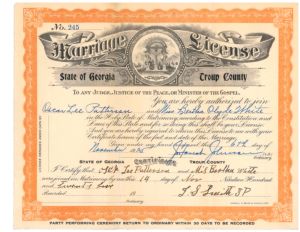 No. 245
Marriage License
State of Georgia Troup County
To any Judge, Justice of the Peace, or Minister of the Gospel.
You are hereby authorized to join
Oscar Lee Patterson and Miss Bertha Clyde White
in the Holy State of Matrimony according to the Constitution and
Laws of this State and for so doing this shall be your License.
And you are hereby required to return this License to me with your
Certificate hereon of the fact and date of the Marriage.
Given under my hand and seal this 6th day
November
State of Georgia Certificate Troup County
I Certify that Patterson and Miss Bertha White
were joined in Matrimony by me this 14 day of Nov Nineteen Hundred
and Twenty four
Recorded 19 T. S. J.P.
PARTY PERFORMING CEREMONY RETURN TO ORDINARY WITHIN 30 DAYS TO BE RECORDED